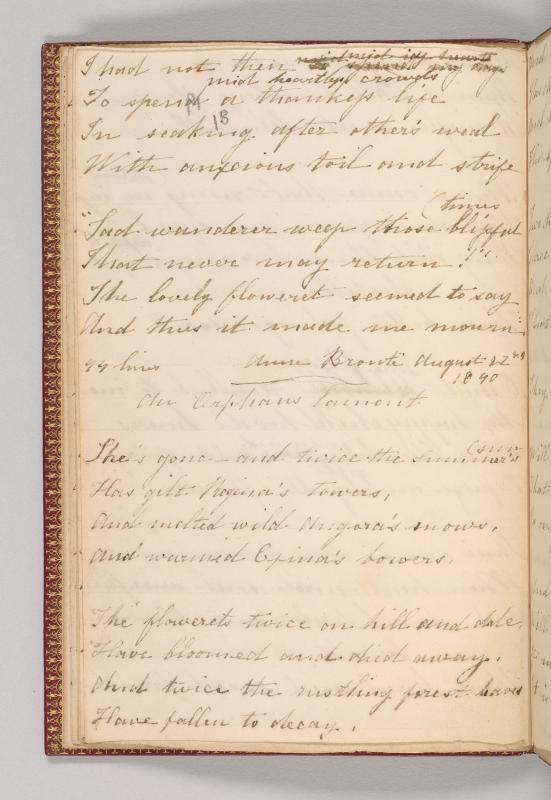 I had not then
mid heartless crowds
To spend a thankless life
18
In seaking after other's weal
With anxious toil and strife
"Sad wanderer weep those blissful
(times
That never may return!"
The lovely floweret seemed to say
And thus it made me mourn
44 lines Anne Brontë August 22nd
1840
An Orphans Lament
She's gone – and twice the summer's
(sun
Has gilt Regina's towers,
And melted wild Angora's snows,
And warmed Exina's bowers.
The flowerets twice on hill and dale
Have bloomed and died away,
And twice the rustling forest leaves
Have fallen to decay,